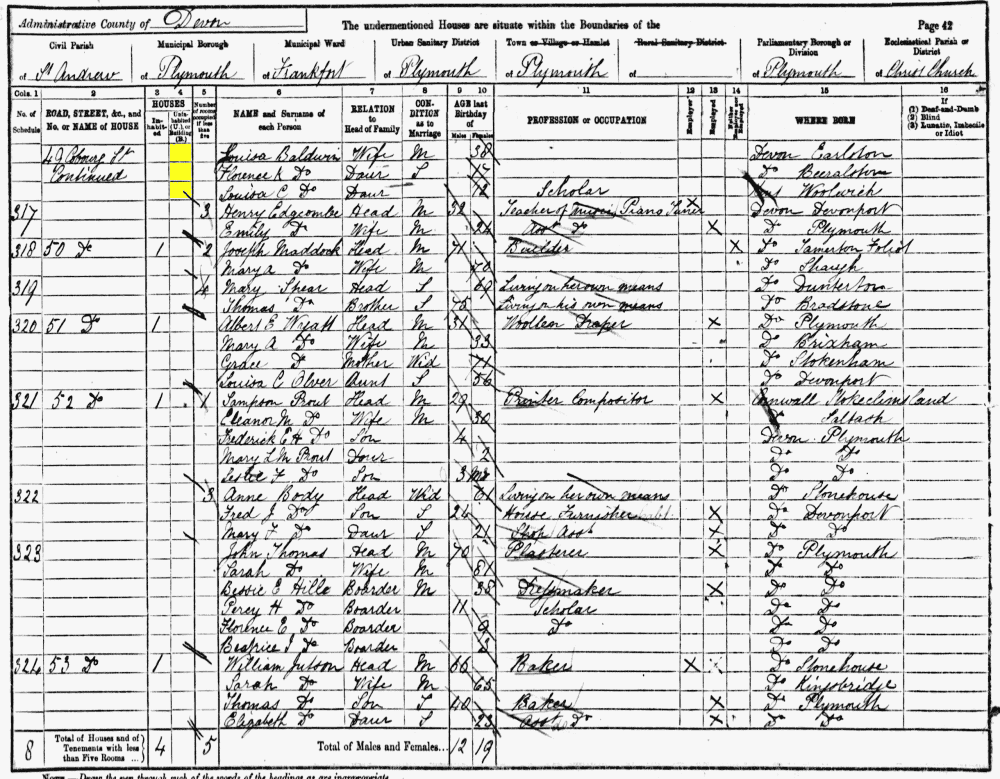 Administrative County of Devon The undermentioned Houses are situate within the Boundaries of the Page 42
Civil Parish Municipal Borough Municipal Ward Urban Sanitary District Town or Village or Hamlet Rural Sanitary District Parliamentary Borough or Division Ecclesiastical Parish or District
of St Andrew of Plymouth of Frankfort of Plymouth of Plymouth of of Plymouth of Christ Church
Cols. 1 2 3 4 5 6 7 8 9 10 11 12 13 14 15 16
No. of Schedule ROAD, STREET, &c., and No. or NAME of HOUSE HOUSES In-habit-ed Unin-habited (U.), or Building (B.) Number of rooms occupied if less than five NAME and Surname of each Person RELATION to Head of Family CON-DITION as to Marriage AGE last Birthday of Males Females PROFESSION or OCCUPATION Employer Employed Neither WHERE BORN If (1) Deaf-and-Dumb (2) Blind (3) Lunatic, Imbecile or Idiot
49 Cobourg St Louisa Baldwin Wife M 38 Devon
Continued Florence K Do Daur S 17 Do Beeralston
Louisa C Do Daur 12 Scholar Woolwich
317 3 Henry Edgcombe Head M 32 Teacher of music, Piano Tuner X Devon Devonport
Emily Do Wife M 24 Asst Do X Do Plymouth
318 50 Do 1 2 Joseph Maddock Head M 71 Builder X Do Tamerton Foliot
Mary A Do Wife M 70 Do Shaugh
319 4 Mary Spear Head S 69 Living on her own means Do Dunterton
Thomas Do Brother S 75 Living on his own means Do Bradstone
320 51 Do 1 Albert E Wyatt Head M 31 Woollen Draper X Do Plymouth
Mary A Do Wife M 33 Do Brixham
Grace Do Mother Wid 71 Do Stokenham
Louisa C Olver Aunt S 56 Do Devonport
321 52 Do 1 1 Sampson Prout Head M 29 Printer Compositor X Cornwall Stokeclimsland
Eleanor M Do Wife M 30 Do Saltash
Frederick E H Do Son 4 Devon Plymouth
Mary L M Prout Daur 2 Do Do
Leslie F Do Son 3 mo Do Do
322 3 Anne Body Head Wid 61 Living on her own means Do Stonehouse
Fred J Do Son S 24 House Furnisher X Do Devonport
Mary F Do Daur S 21 Shop Asst X Do Do
323 John Thomas Head M 70 Plasterer X Do Plymouth
Sarah Do Wife M 81 Do Do
Bessie E Hille Boarder M 38 Dressmaker X Do Do
Percy H Do Boarder 11 Scholar Do Do
Florence E Do Boarder 9 Do Do Do
Beatrice J Do Boarder Do Do
324 53 Do 1 William Jutson Head M 66 Baker X Do Stonehouse
Sarah Do Wife M 65 Do Kingsbridge
Thomas Do Son S 40 Baker X Do Plymouth
Elizabeth Do Daur S 23 Asst Do X Do Do
8 Total of Houses and of Tenements with less than Five Rooms ... 4 5 Total of Males and Females... 12 19
NOTE.—Draw the pen through such of the words of the headings as are inappropriate.